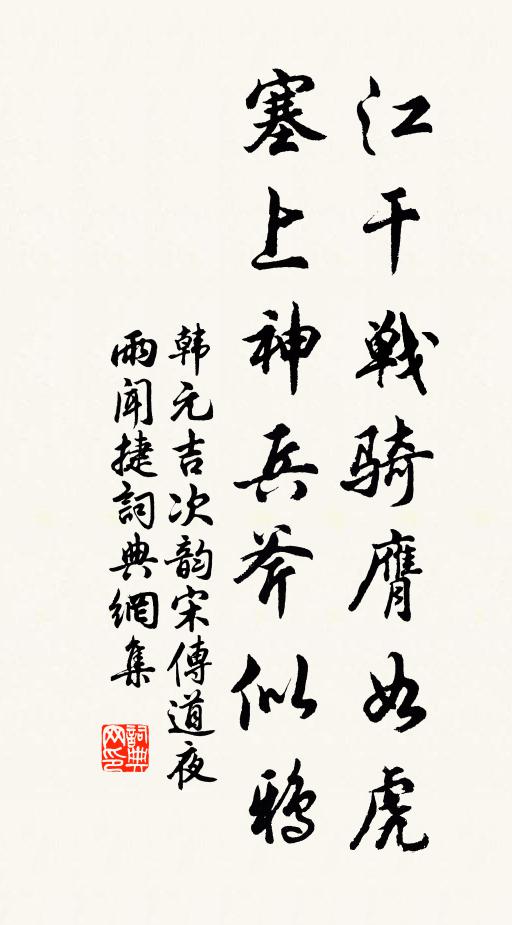 江干戦骑膺如虎
塞上神兵斧似鸦
韩元吉次韵宋傳道夜
雨闻捷詞典網集
詞典
网印